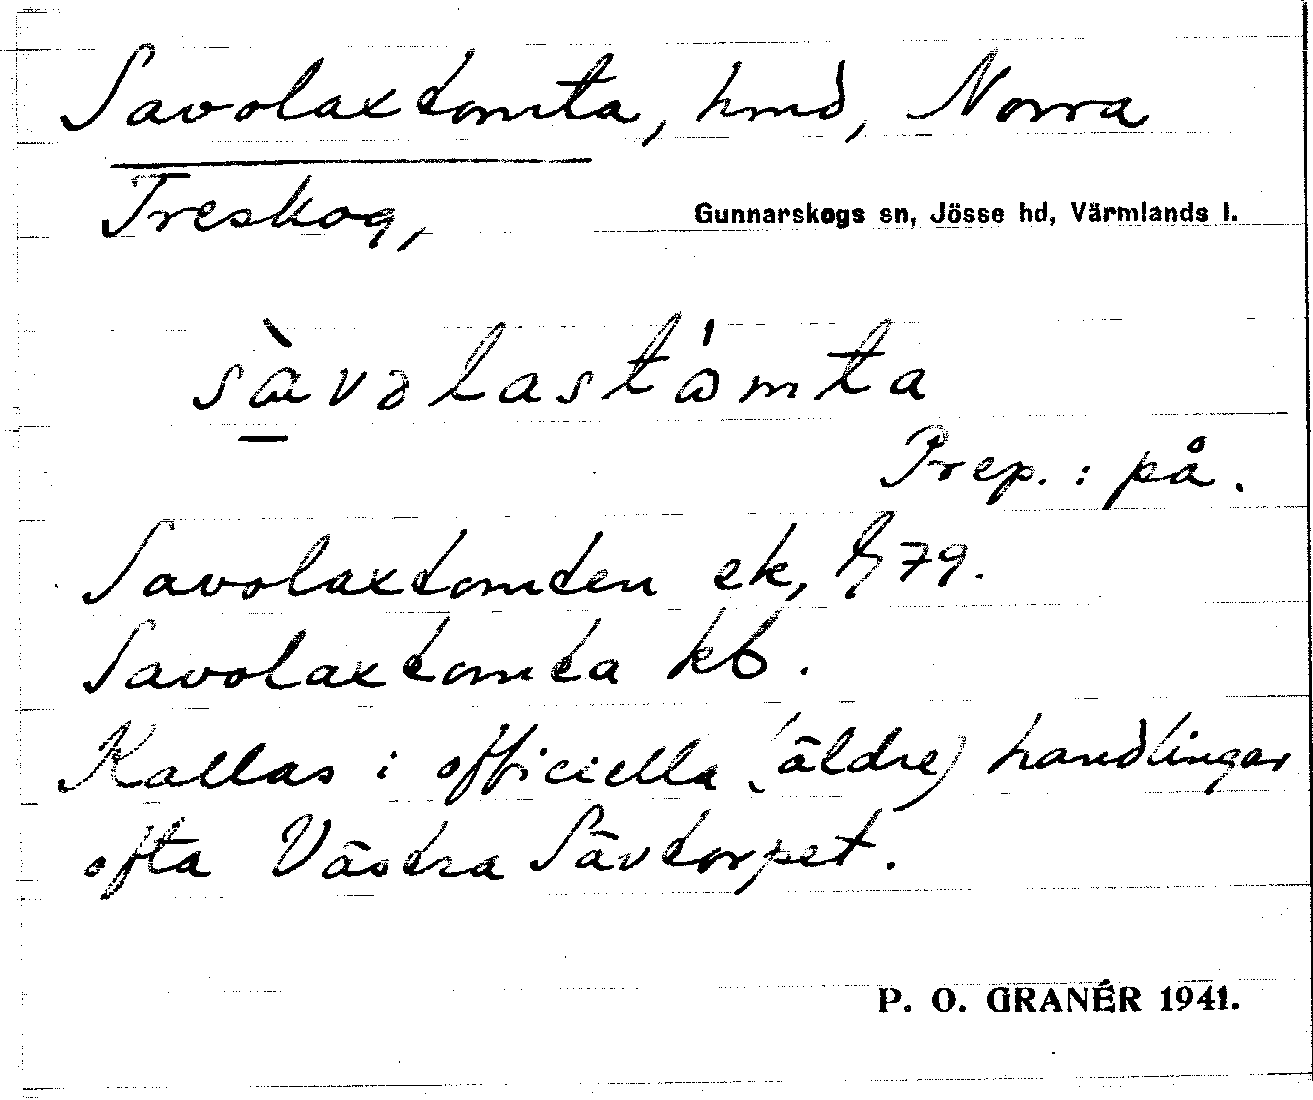 Savolaxtomta, hmd, Norra
Treskog, Gunnarskogs sn, Jösse hd, Värmlands l.
sàvolastómta
Prep.: på.
Savolaxtomten ek, 79.
Savolaxtomta kb.
Kallas i officiella (äldre) handlingar
ofta Västra Sävtorpet.
P. O. GRANÉR 1941.